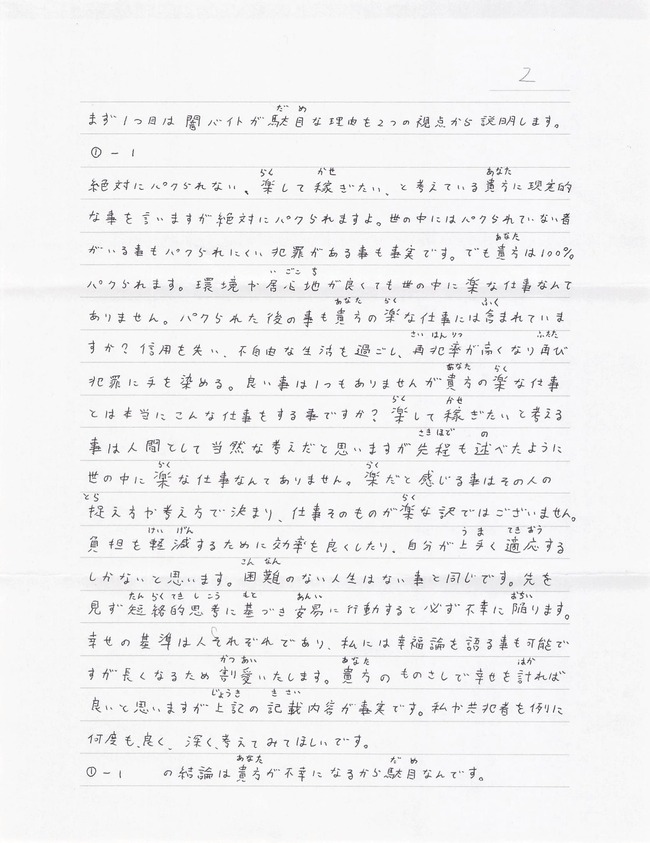 2
まず1つ目は闇バイトが駄目な理由を2つの視点から説明します。
①-1
絶対にパクられない、楽して稼ぎたい、と考えている貴方に現実的
な事を言いますが絶対にパクられますよ。世の中にはパクられていない者
がいる事もパクられにくい犯罪がある事も事実です。でも貴方は100%
パクられます。環境や居心地が良くても世の中に楽な仕事なんて
ありません。パクられた後の事も貴方の楽な仕事には含まれていま
すか?信用を失い、不自由な生活を過ごし、再犯率が高くなり再び
犯罪に手を染める。良い事は1つもありませんが貴方の楽な仕事
とは本当にこんな仕事をする事ですか?楽して稼ぎたいと考える
事は人間として当然な考えだと思いますが先程も述べたように
世の中に楽な仕事なんてありません。楽だと感じる事はその人の
捉え方や考え方で決まり、仕事そのものが楽な訳ではございません。
負担を軽減するために効率を良くしたり、自分が上手く適応する
しかないと思います。困難のない人生はない事と同じです。先を
見ず短絡的思考に基づき安易に行動すると必ず不幸に陥ります。
幸せの基準は人それぞれであり、私には幸福論を語る事も可能で
すが長くなるため割愛いたします。貴方のものさしで幸せを計れば
良いと思いますが上記の記載内容が事実です。私や共犯者を例に
何度も、良く、深く、考えてみてほしいです。
①-1 の結論は貴方が不幸になるから駄目なんです。